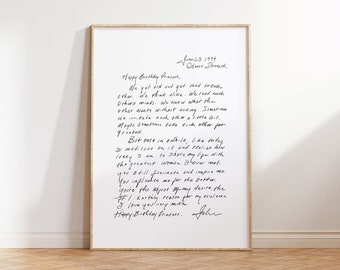 June 23 1994
Odense, Denmark.
Happy Birthday Princess,
We get old and get used to each
other. We think alike. We read each
others minds. We know what the
other wants without asking. Sometimes
we irritate each other a little bit.
Maybe sometimes take each other for
granted.
But once in awhile, like today,
I meditate on it and realize how
lucky I am to share my life with
the greatest woman I ever met.
You still fascinate and inspire me.
You influence me for the better.
You're the object of my desire, the
#1 Earthly reason for my existence.
I love you very much
Happy Birthday Princess.
John